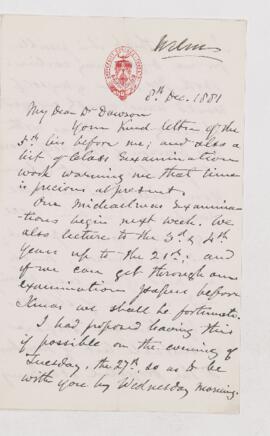 8th Dec. 1881
My Dear Dr Dawson
Your kind letter of the
5th lies before me; and also a
list of Class Examination
work warning me that time
is precious at present.
Our Michaelmas Examina-
tions begin next week. We
also lecture to the 3rd & 4th
Years up to the 21st; and
if we can get through our
examination papers before
Xmas we shall be fortunate.
I had proposed leaving this
if possible on the evening of
Tuesday, the 27th, so as to be
with you by Wednesday morning.